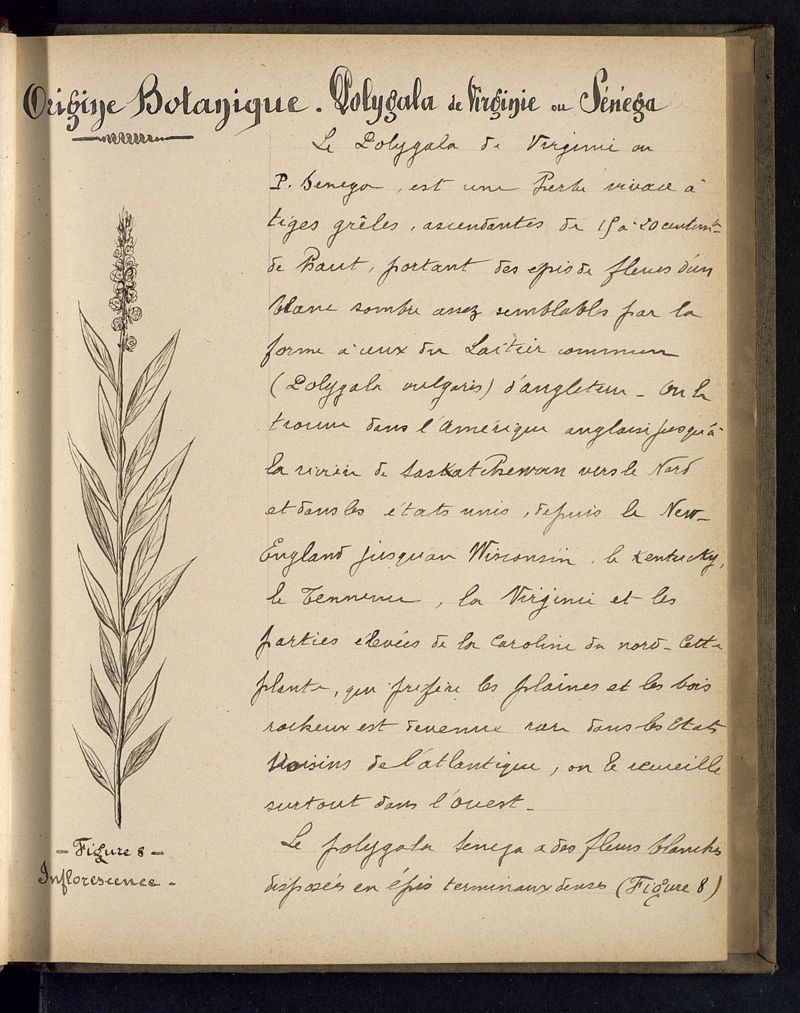 Origine Botanique. Polygala de Virginie ou Sénéga
Le Polygala de Virginie ou
P. Senega, est une herbe vivace à
tiges grêles, ascendantes de 15 à 20 centimt
de haut, portant des epis de fleurs d'un
blanc sombre assez semblables par la
forme à ceux du Laitier commun
(Polygala vulgaris) d'angleterre - On le
trouve dans l'Amérique anglaise jusqu'à
la rivière de Saskatchewan vers le Nord
et dans les états unis, depuis le New-
England jusqu'au Wisconsin, le Kentucky,
le Tennessee, la Virginie et les
parties elevées de la Caroline du nord - Cette
plante, qui préfère les plaines et les bois
rocheux est devenue rare dans les Etats
Voisins de l'atlantique, on le recueille
surtout dans l'ouest -
Le polygala senega a des fleurs blanches
disposées en épis terminaux denses (Figure 8)
- Figure 8 -
Inflorescence -